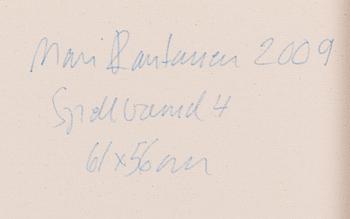 Mari Rantanen 2009
Spellbound 4
61x56cm